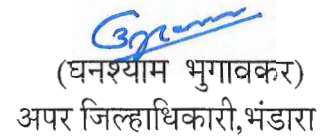 (घनश्याम भुगावकर)
अपर जिल्हाधिकारी,भंडारा